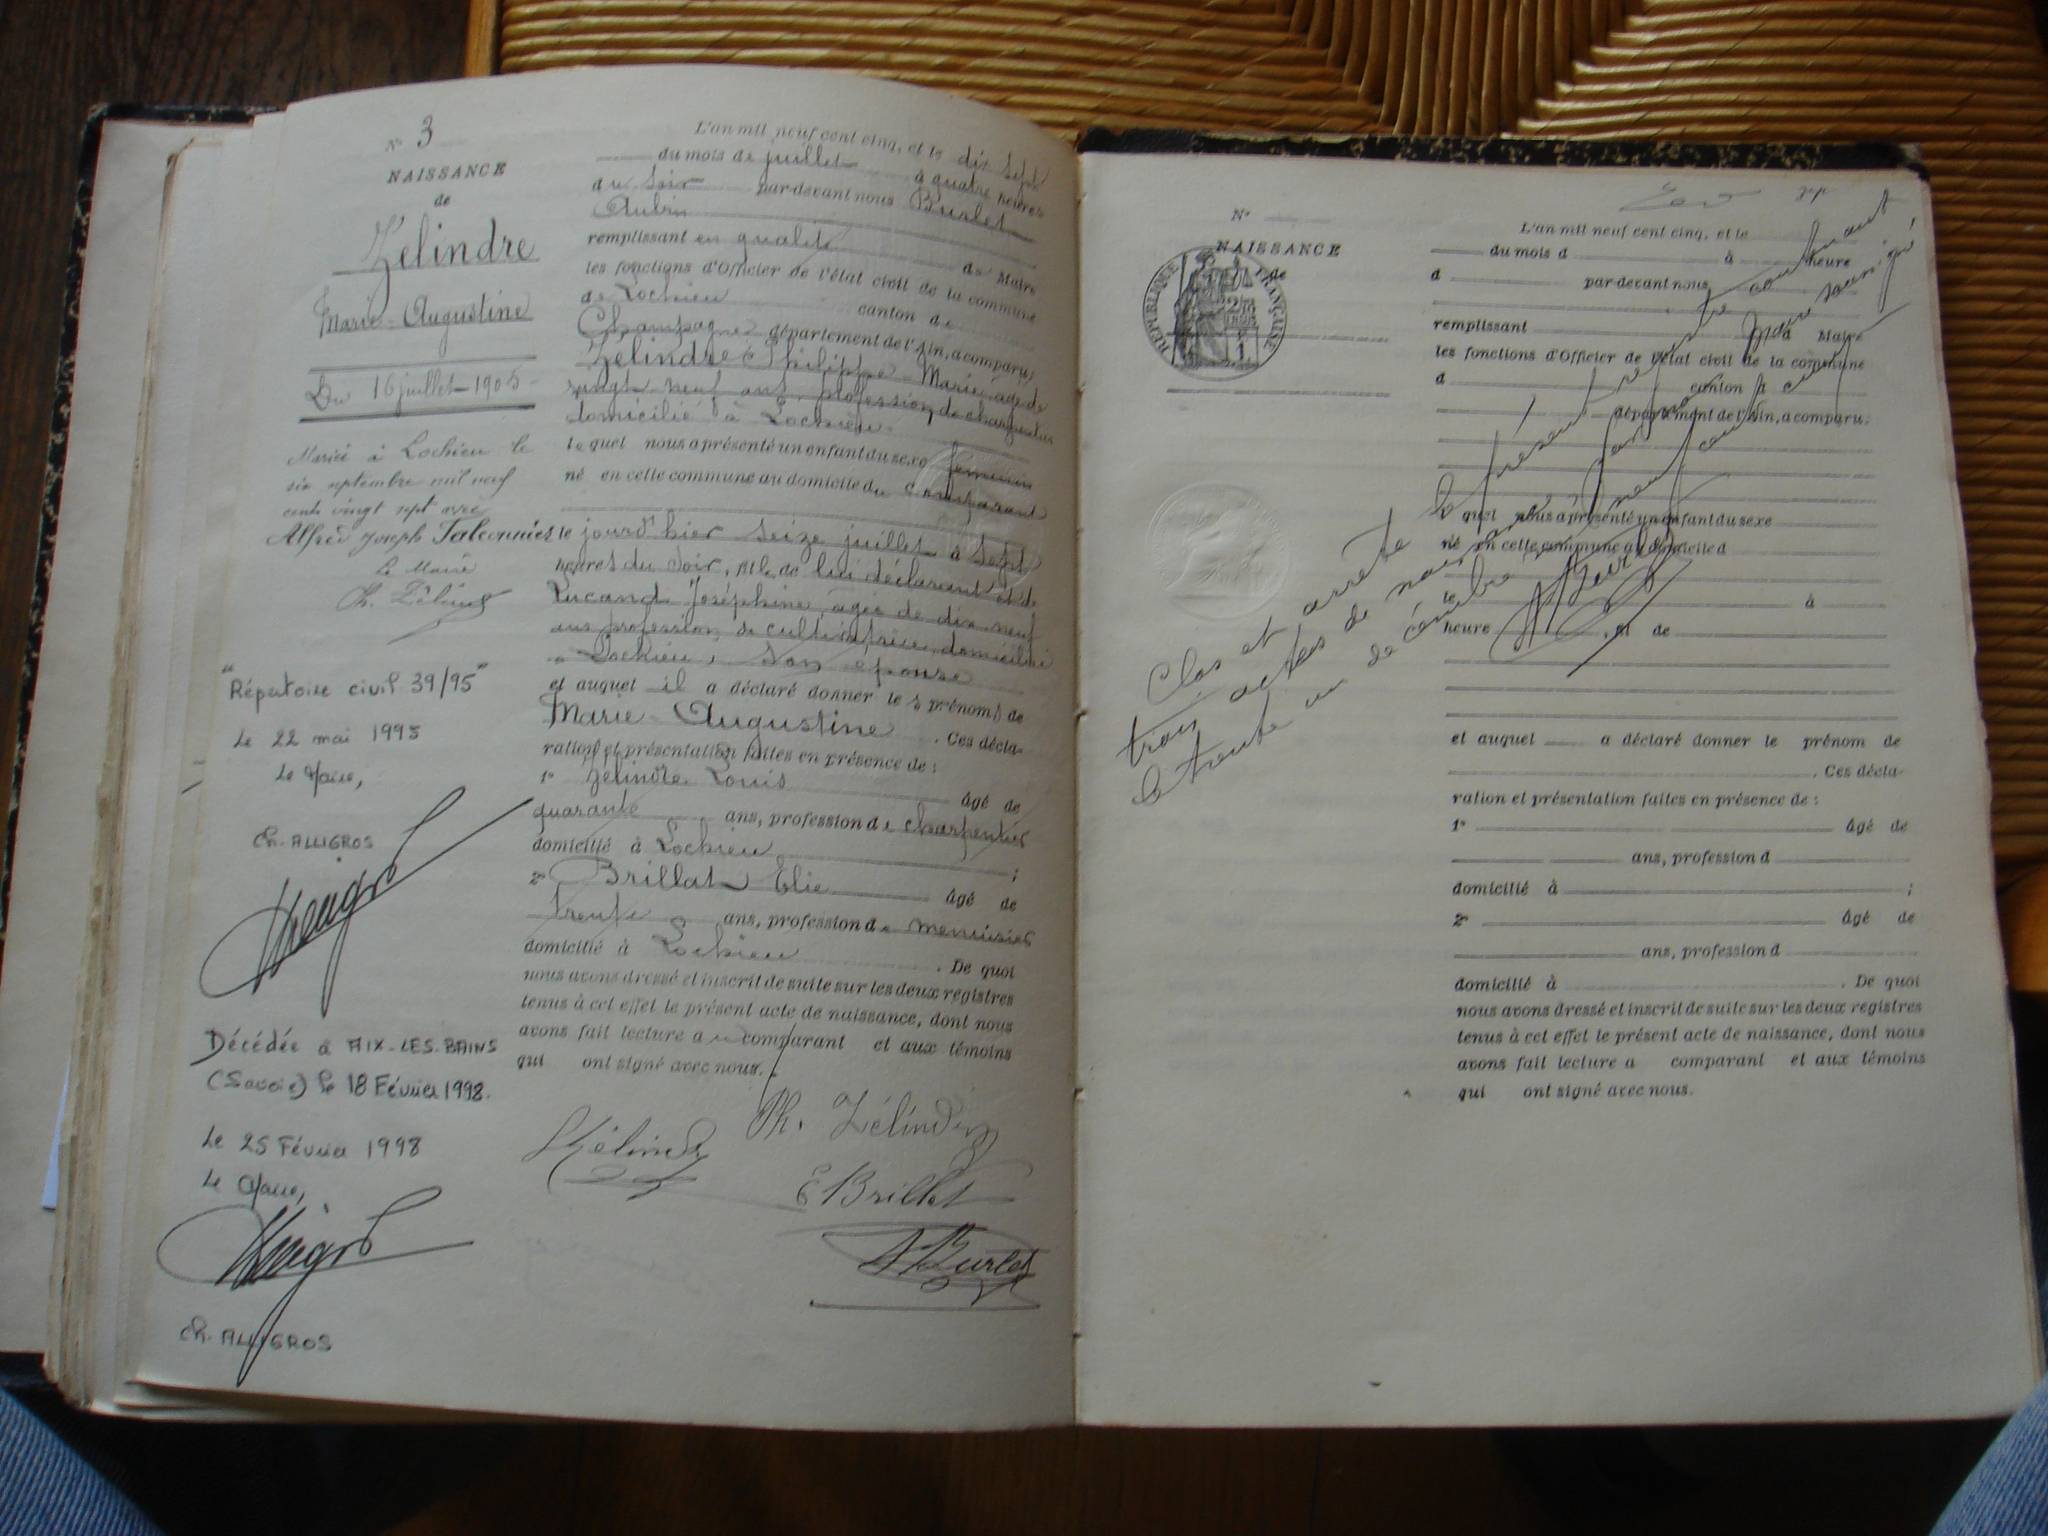 N° 3
NAISSANCE
de
Zélindre
Marie-Augustine
Du 16 juillet 1905
Mariée à Lochieu le
six septembre mil neuf
cent vingt sept avec
Alfred Joseph
Le Maire
Ph. Zélindre
"Répertoire civil 39/95"
Le 22 mai 1995
Le Maire,
Ch. ALLIGROS
Décédée à AIX-LES-BAINS
(Savoie) le 18 Février 1998.
Le 25 Février 1998
Le Maire,
Ch. ALLIGROS
L'an mil neuf cent cinq, et le dix sept
du mois de juillet à quatre heures
du soir par-devant nous Burlet
Aubin
remplissant en qualité de Maire
les fonctions d'Officier de l'état civil de la commune
de Lochieu canton de
Champagne département de l'Ain, a comparu,
Zélindre Philippe-Marie, âgé de
vingt neuf ans, profession de charpentier
domicilié à Lochieu
lequel nous a présenté un enfant du sexe féminin
né en cette commune au domicile du comparant
le jourd'hier seize juillet à sept
heures du soir, fille de lui déclarant et de
Lucand Joséphine, âgée de dix neuf
ans profession de cultivatrice, domiciliée
à Lochieu, son épouse
et auquel il a déclaré donner les prénoms de
Marie-Augustine. Ces décla-
ration et présentation faites en présence de :
1° Zélindre Louis âgé de
quarante ans, profession de charpentier
domicilié à Lochieu ;
2° Brillat Elie âgé de
trente ans, profession de menuisier
domicilié à Lochieu. De quoi
nous avons dressé et inscrit de suite sur les deux registres
tenus à cet effet le présent acte de naissance, dont nous
avons fait lecture au comparant et aux témoins
qui ont signé avec nous.
Zélindre Ph. Zélindre
E Brillat
A Burlet
N°
NAISSANCE
de
REPUBLIQUE FRANÇAISE
L'an mil neuf cent cinq, et le
du mois d à heure
d par-devant nous
remplissant d Maire
les fonctions d'Officier de l'état civil de la commune
d canton d
département de l'Ain, a comparu,
lequel nous a présenté un enfant du sexe
né en cette commune au domicile d
le à
heure , fil de
et auquel a déclaré donner le prénom de
. Ces décla-
ration et présentation faites en présence de :
1° âgé de
ans, profession d
domicilié à ;
2° âgé de
ans, profession d
domicilié à . De quoi
nous avons dressé et inscrit de suite sur les deux registres
tenus à cet effet le présent acte de naissance, dont nous
avons fait lecture a comparant et aux témoins
qui ont signé avec nous.
Clos et arrêté le présent registre contenant
trois actes de naissance, par nous Maire soussigné,
le trente un décembre mil neuf cent cinq
A Burlet